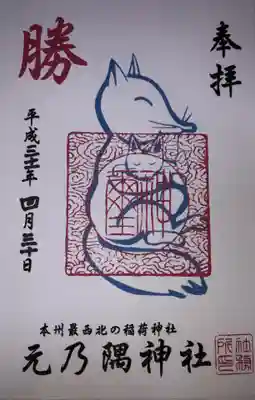 奉拝
勝
平成三十一年 四月三十日
本州最西北の稲荷神社
元乃隅神社
社務所印